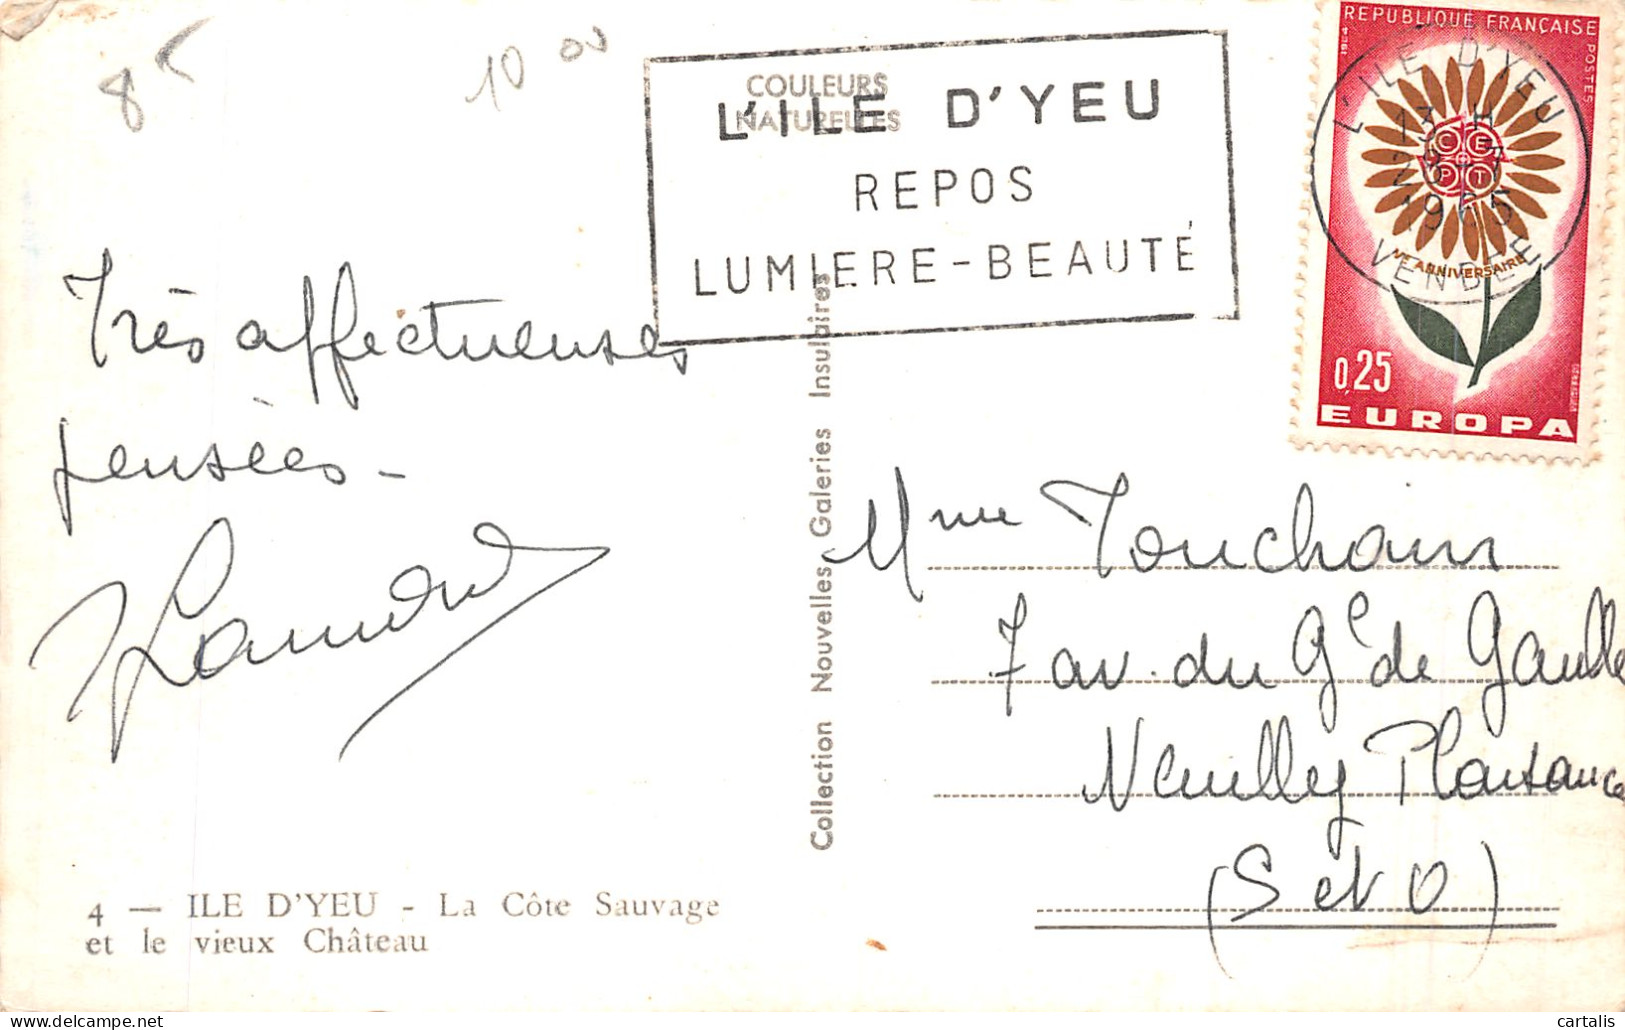 8
10
COULEURS
NATURELLES
L'ILE D'YEU
REPOS
LUMIERE-BEAUTÉ
REPUBLIQUE FRANÇAISE
1964
POSTES
L'ILE D'YEU
13 H
1965
VENDEE
C E
P T
Ve ANNIVERSAIRE
0,25
EUROPA
Très affectueuses
pensées -
Collection Nouvelles Galeries Insulaires
Mme Touchain
7 av. du Gl de Gaulle
Neuilly Plaisance
(S et O)
4 — ILE D'YEU - La Côte Sauvage
et le vieux Château
cartalis